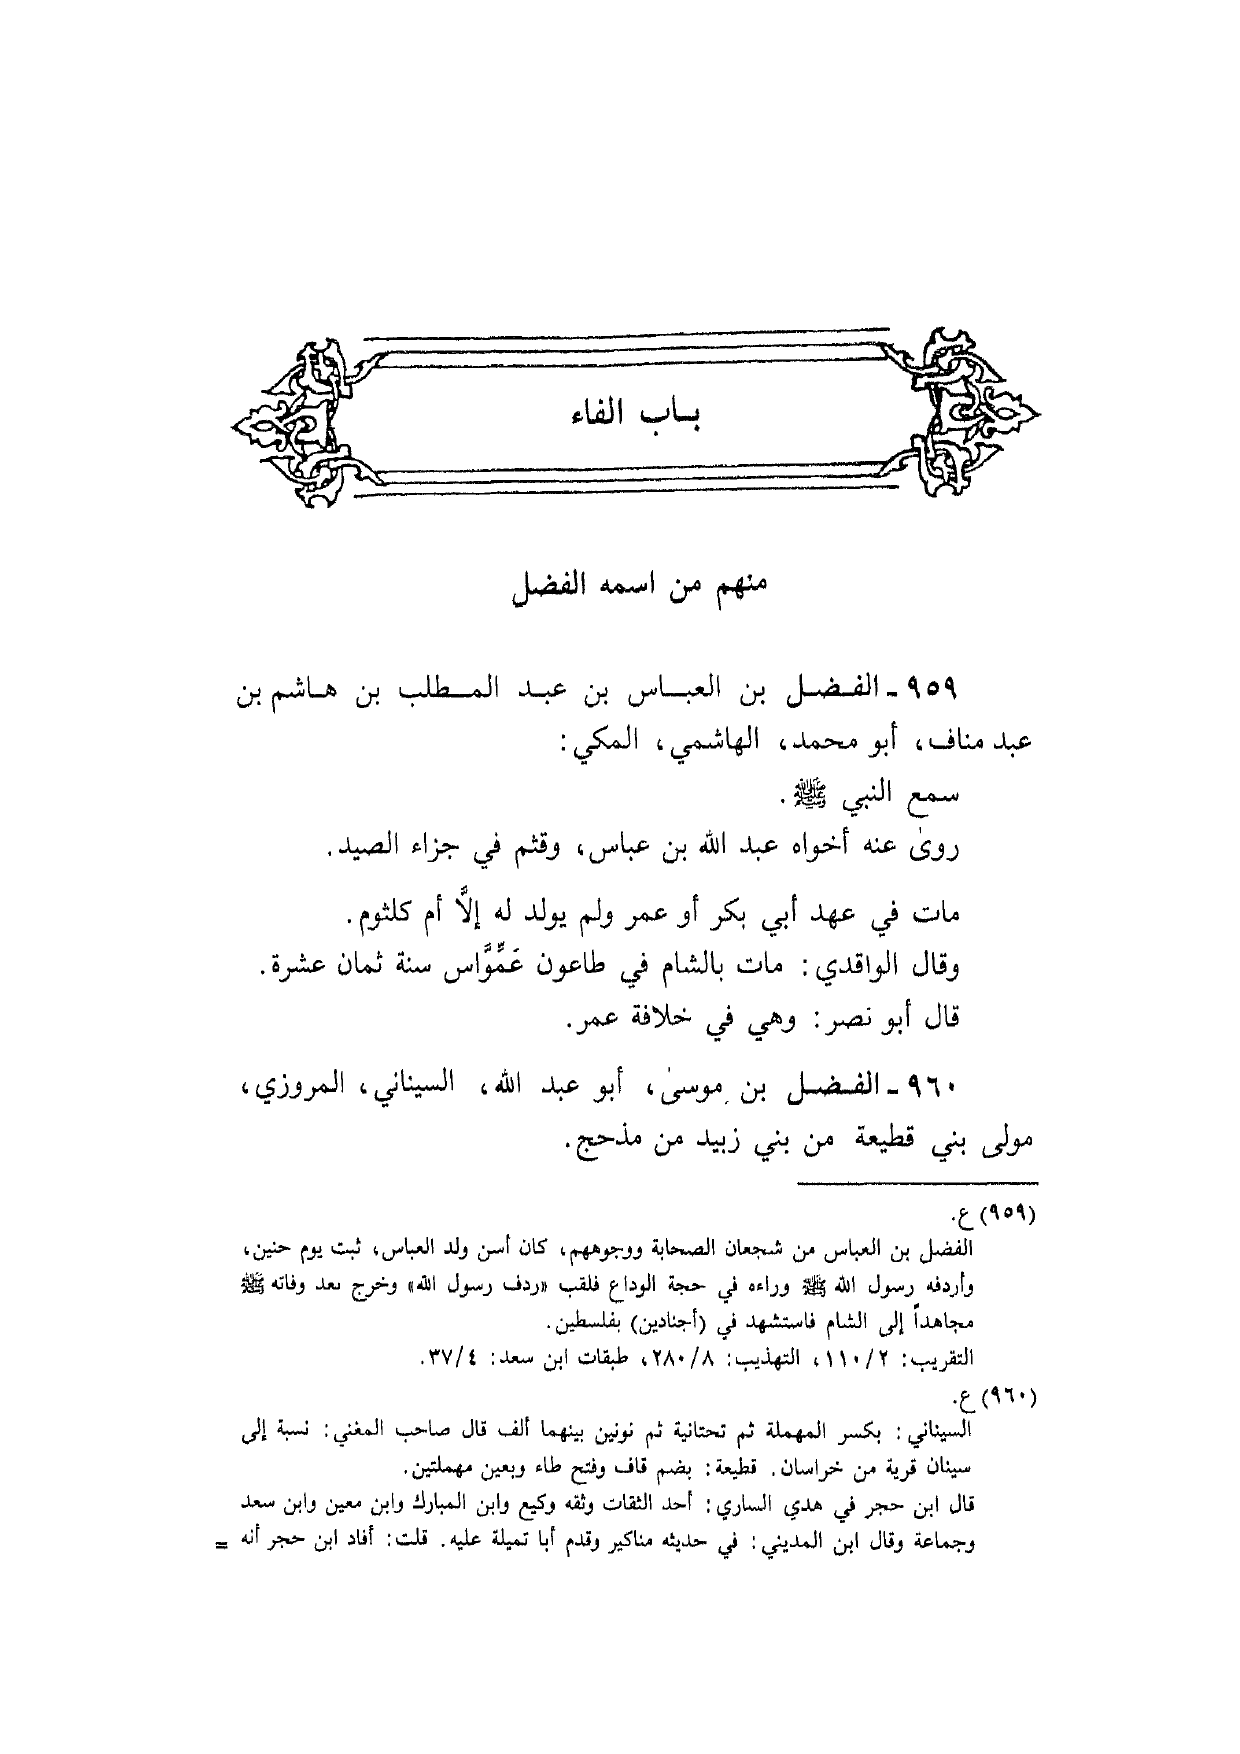 باب الفاء
منهم من اسمه الفضل
٩٥٩ ـ الفضل بن العباس بن عبد المطلب بن هاشم بن
عبد مناف، أبو محمد، الهاشمي، المكي:
سمع النبي ﷺ.
روىٰ عنه أخواه عبد الله بن عباس، وقثم في جزاء الصيد.
مات في عهد أبي بكر أو عمر ولم يولد له إلاَّ أم كلثوم.
وقال الواقدي: مات بالشام في طاعون عَمِّوَّاس سنة ثمان عشرة.
قال أبو نصر: وهي في خلافة عمر.
٩٦٠ ـ الفضل بن موسىٰ، أبو عبد الله، السيناني، المروزي،
مولى بني قطيعة من بني زبيد من مذحج.
(٩٥٩) ع.
الفضل بن العباس من شجعان الصحابة ووجوههم، كان أسن ولد العباس، ثبت يوم حنين،
وأردفه رسول الله ﷺ وراءه في حجة الوداع فلقب «ردف رسول الله» وخرج بعد وفاته ﷺ
مجاهداً إلى الشام فاستشهد في (أجنادين) بفلسطين.
التقريب: ١١٠/٢، التهذيب: ٢٨٠/٨، طبقات ابن سعد: ٣٧/٤.
(٩٦٠) ع.
السيناني: بكسر المهملة ثم تحتانية ثم نونين بينهما ألف قال صاحب المغني: نسبة إلى
سينان قرية من خراسان. قطيعة: بضم قاف وفتح طاء وبعين مهملتين.
قال ابن حجر في هدي الساري: أحد الثقات وثقه وكيع وابن المبارك وابن معين وابن سعد
وجماعة وقال ابن المديني: في حديثه مناكير وقدم أبا تميلة عليه. قلت: أفاد ابن حجر أنه =